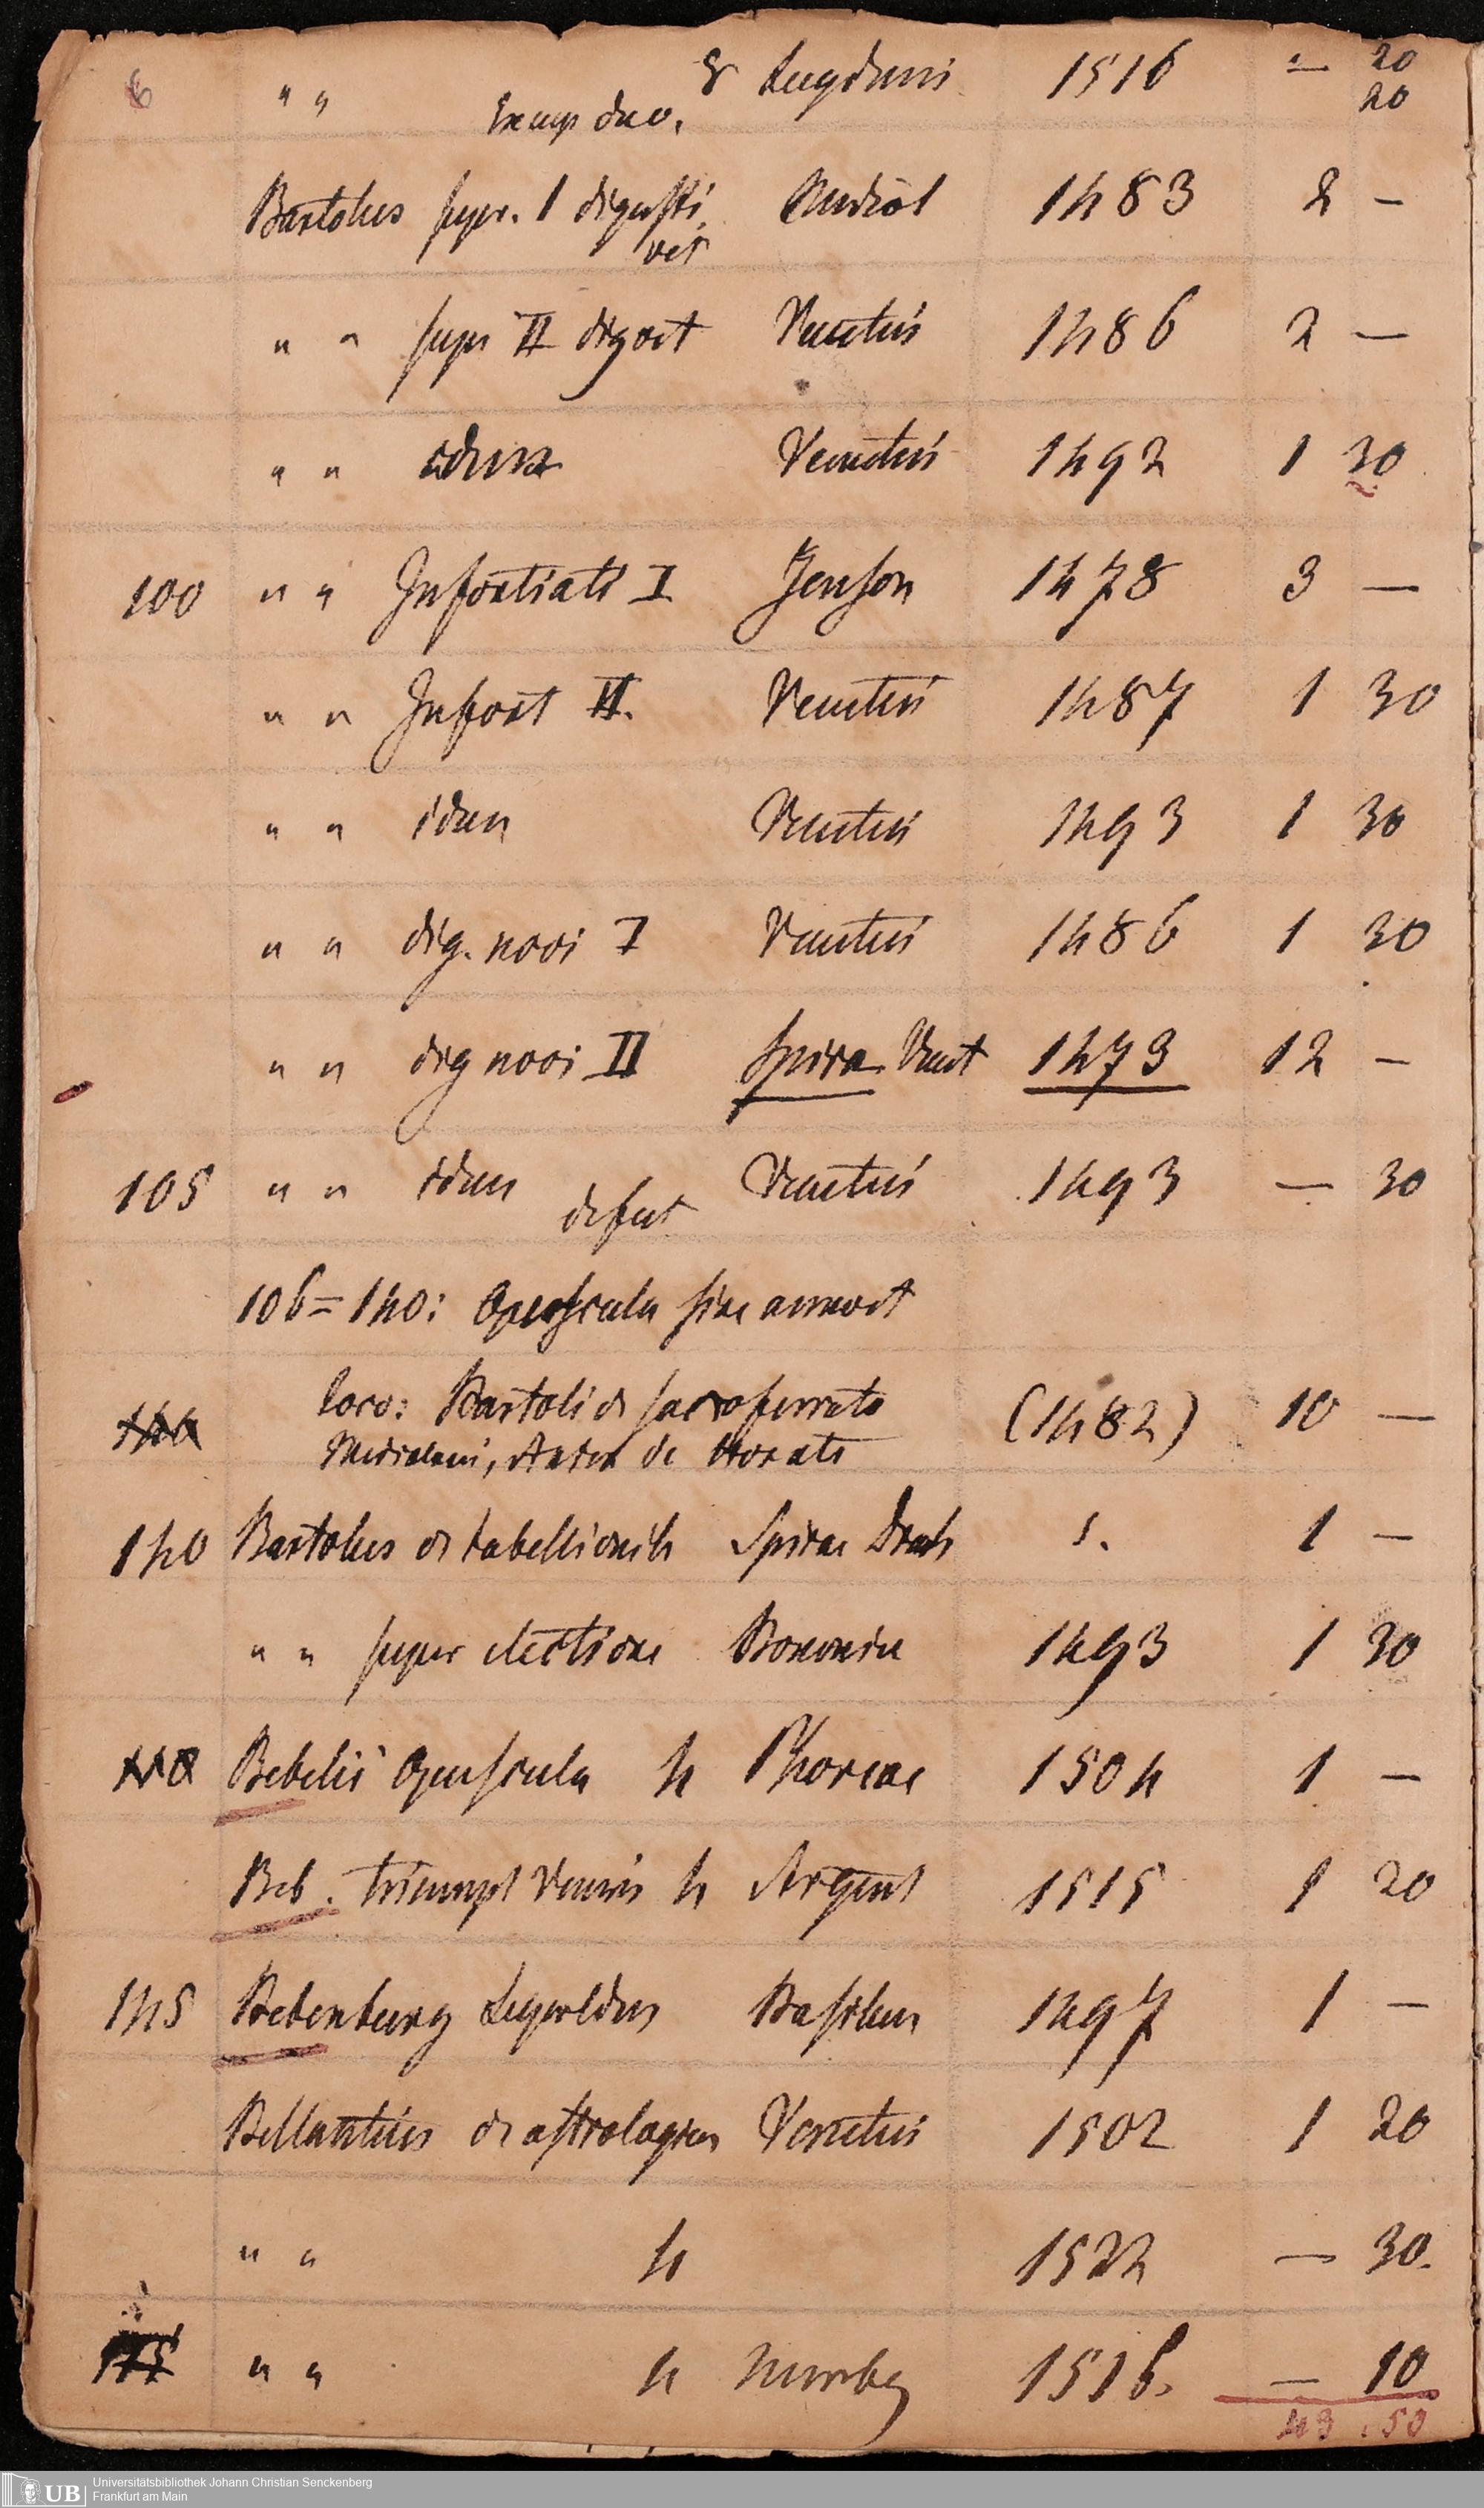 6 " " 8 Lugduni 1516 — 20
Exemp duo. 20
Bartolus super. I digesti Mediol 1483 2 —
vet
" " super II dig vet Venetiis 1486 2 —
" " idem Venetiis 1492 1 30
100 " " Infortiati I Jenson 1478 3 —
" " Infort II. Venetiis 1487 1 30
" " idem Venetiis 1493 1 30
" " dig. novi I Venetiis 1486 1 30
" " dig novi II Spira Venet 1473 12 —
105 " " idem Venetiis 1493 — 30
defect
106 = 140: Opuscula sine anno et
loco: Bartoli de saxoferrato (1482) 10 —
Mediolani, de
140 Bartolus de tabellionib Spirae Drach s. 1 —
" " super electione Bononiae 1493 1 30
Bebelii Opuscula 4 Phorcae 1504 1 —
Beb. triumph Veneris 4 Argent 1515 1 20
145 Bebenburg Lupoldus Basileae 1497 1 —
Bellantius de astrologia Venetiis 1502 1 20
" " 4 1522 — 30.
" " 4 Nurnbg 1516. — 10
43.50
Universitätsbibliothek Johann Christian Senckenberg
UB Frankfurt am Main